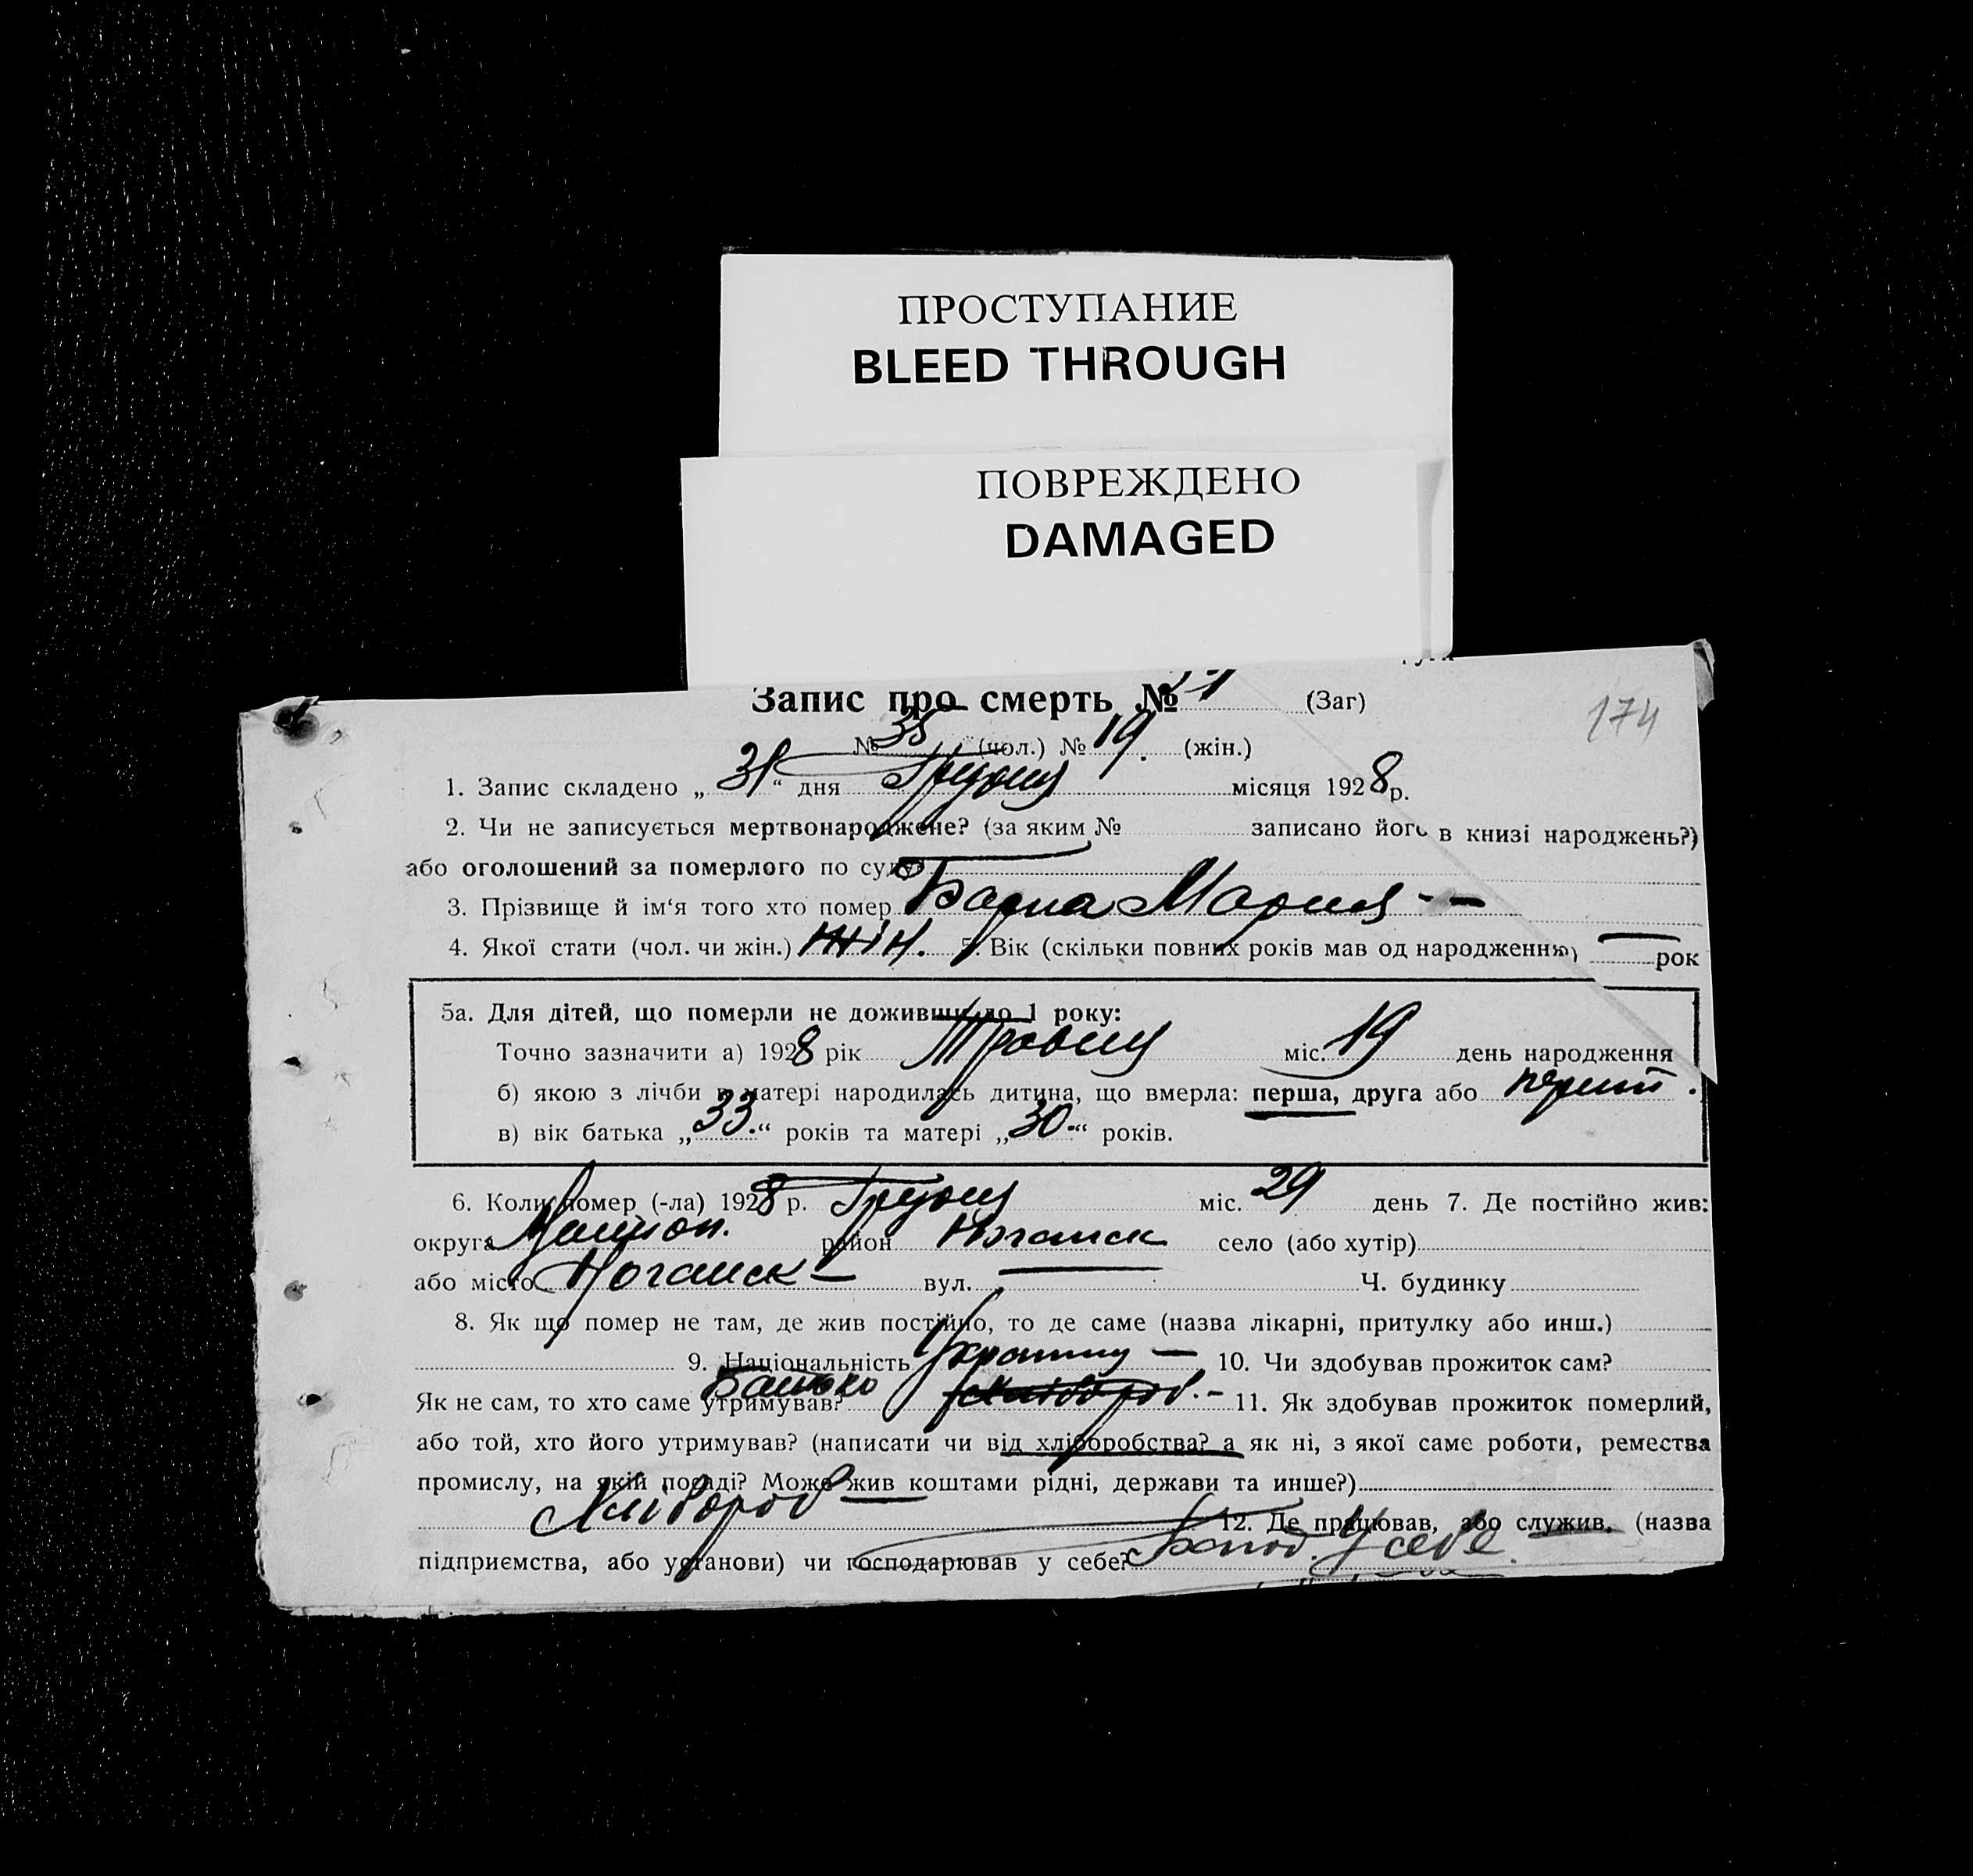 ПРОСТУПАНИЕ
BLEED THROUGH
ПОВРЕЖДЕНО
DAMAGED
Запис про смерть № (Заг)
174
№ 35 (чол.) № 19. (жін.)
1. Запис складено „ 31 “ дня Грудня місяця 1928 р.
2. Чи не записується мертвонароджене? (за яким № записано його в книзі народжень?)
або оголошений за померлого по суду?
3. Прізвище й ім‘я того хто помер Мария - —
4. Якої стати (чол. чи жін.) жін. 5. Вік (скільки повних років мав од народження) — рок
5а. Для дітей, що померли не доживши до 1 року:
Точно зазначити а) 1928 рік Травня міс. 19 день народження
б) якою з лічби в матері народилась дитина, що вмерла: перша, друга або
в) вік батька „ 33. “ років та матері „ 30. “ років.
6. Коли помер (-ла) 1928 р. Грудня міс. 29 день 7. Де постійно жив:
округа район Ногайск село (або хутір)
або місто Ногайск — вул. — Ч. будинку
8. Як що помер не там, де жив постійно, то де саме (назва лікарні, притулку або инш.)
9. Національність 10. Чи здобував прожиток сам?
Як не сам, то хто саме утримував? Батько 11. Як здобував прожиток померлий,
або той, хто його утримував? (написати чи від хліборобства? а як ні, з якої саме роботи, ремества
промислу, на якій посаді? Може жив коштами рідні, держави та инше?)
Хлібороб 12. Де працював, або служив. (назва
підприємства, або установи) чи господарював у себе? У себе.